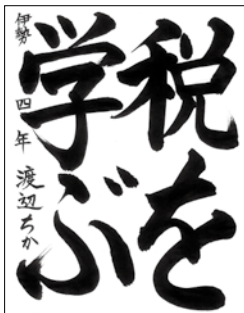 税を
学ぶ
伊勢 四年 渡辺ちか